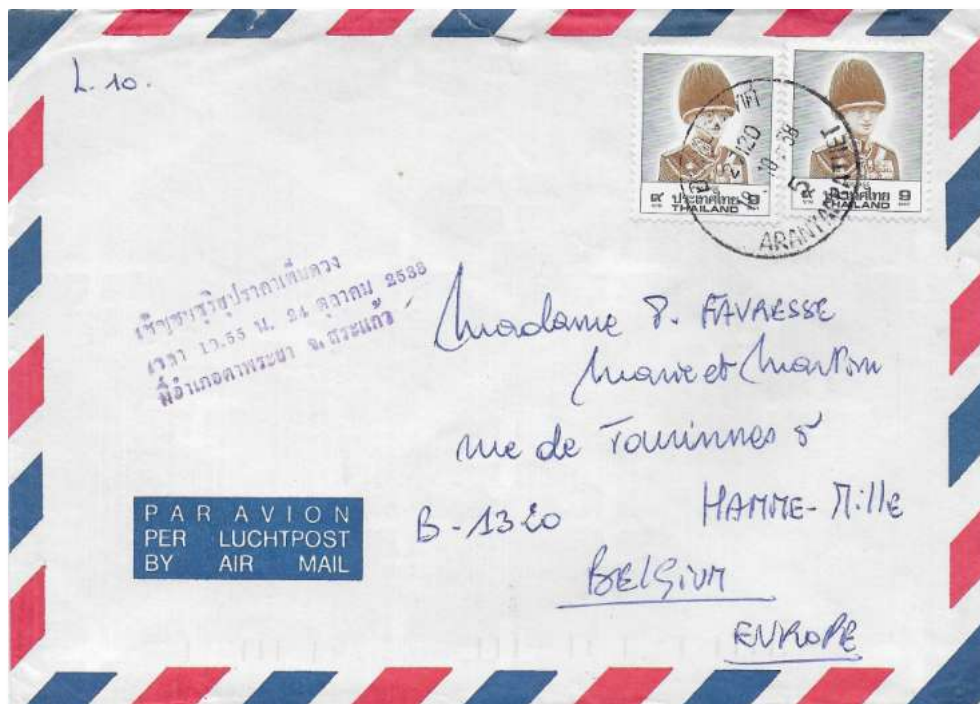 L. 10.
๙ ประเทศไทย 9
THAILAND
๙ ประเทศไทย 9
THAILAND
27120
ARANYAPRATHET
เชิญชมสุริยุปราคาเต็มดวง
เวลา 10.55 น. 24 ตุลาคม 2538
ที่อำเภอตาพระยา จ.สระแก้ว
Madame J. FAVRESSE
Marie et Martin
rue de Tourinnes 8
B-1320 HAMME-Mille
BELGIUM
EUROPE
PAR AVION
PER LUCHTPOST
BY AIR MAIL